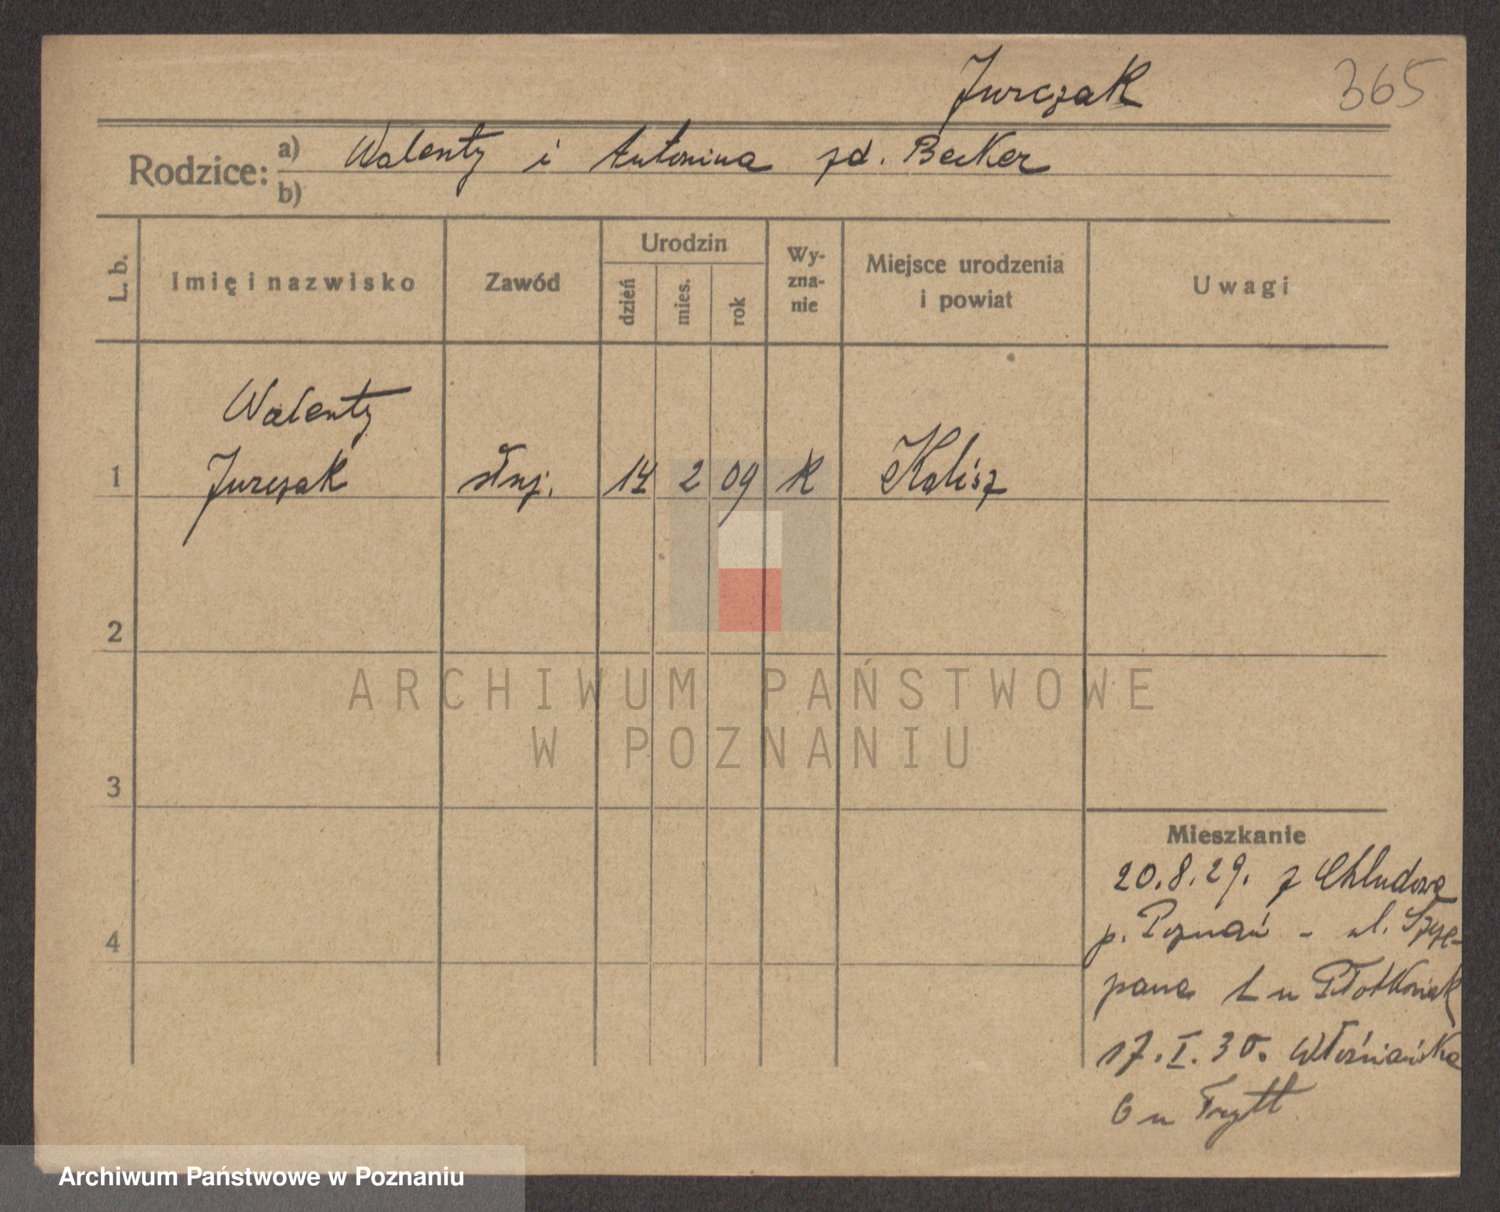 Jurczak 365
Rodzice: a) Walenty i Antonina zd. Becker
b)
L. b. Imię i nazwisko Zawód Urodzin dzień mies. rok Wyznanie Miejsce urodzenia i powiat Uwagi
Walenty
1 Jurczak służ. 14 2 09 K Kalisz
2
3
4
Mieszkanie
20.8.29. z Chludowa
p. Poznań - ul. Szcze-
pana 1 u
17.I.30. Włościańska
6 u Frytt
ARCHIWUM PAŃSTWOWE
W POZNANIU
Archiwum Państwowe w Poznaniu